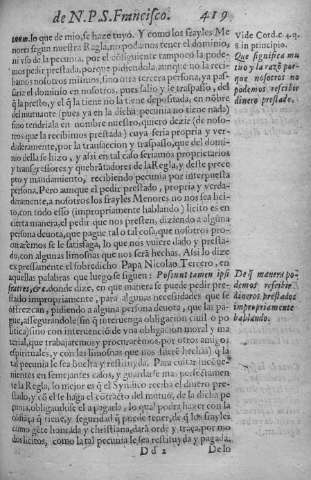 de N.P.S. Francisco. 419
tuum, lo que de mio, se haze tuyo. Y como los frayles Me
nores segun nuestra Regla, no podamos tener el dominio,
ni vso de la pecunia, por el consiguiente tampoco la pode-
mos pedir prestada, porque pidiendola, aunque no la reci-
bamos nosotros mismos, sino otra tercera persona, ya pas-
el dominio en nosotros, pues salio y se traspasso, del
q̃ la presto, y el q̃ la tiene no la tiene depositada, en nõbre
del mutuante (pues ya en la dicha pecunia no tiene nada)
sino tendriala en nombre nuestro, quiero dezir (de noso-
tros que la recibimos prestada) cuya seria propria y ver-
daderamente, por la translacion y traspasso, que del domi
nio della se hizo, y assi en tal caso seriamos proprietarios
y transgressores y quebrãtadores de la Regla, y deste prece
pto y mandamiento, recibiendo pecunia por interpuesta
persona. Pero aunque el pedir prestado, propria y verda-
deramente, a nosotros los frayles Menores no nos sea lici-
to, con todo esso (impropriamente hablando) licito es en
cierta manera, el pedir que nos presten, diziendo a alguna
persona deuota, que pague tal o tal cosa, que nosotros pro-
curaremos se le satisfaga, lo que nos vuiere dado y presta-
do, con algunas limosnas que nos serã hechas. Assi lo dize
expressamente el sobredicho Papa Nicolao Tercero, en
aquellas palabras que luego se siguen: Possunt tamen ipsi
fratres, &c. donde dize, en que manera se puede pedir pre-
stado impropriamente, para algunas necessidades que se
ofrezcan, pidiendo a alguna persona deuota, que las pa-
gue, assegurãdole, sin q̃ interuenga obligacion ciuil o po
litica, sino con intencion de vna obligacion moral y ma
terial, que trabajaremos y procuraremos, por otros amigos
espirituales, y con las limosnas que nos fuerẽ hechas) q̃ la
tal pecunia le sea buelta y restituyda. Para euitar inconue-
nientes en semejantes casos, y guardarse mas perfectamen
te la Regla, lo mejor es q̃ el Syndico reciba el dinero pre-
stado, y cõ el se haga el contracto del mutuo, de la dicha pe
cunia, obligandose el a pagarla, lo qual podra hazer con la
q̃ tiene, y seguridad q̃ puede tener, de q̃ los frayles
como gẽte honrada y christiana, darã orde y traça, por mo
dos licitos, como la tal pecunia le sea restituyda y pagada.
Dd 2 De lo
Vide Cord. c. 4. q.
8. in principio.
Que significa mu
tuo y la razõ por-
que nosotros no
podemos recebir
dinero prestado.
De q̃ manera po-
demos recebir
dineros prestados
impropriamente
hablando.